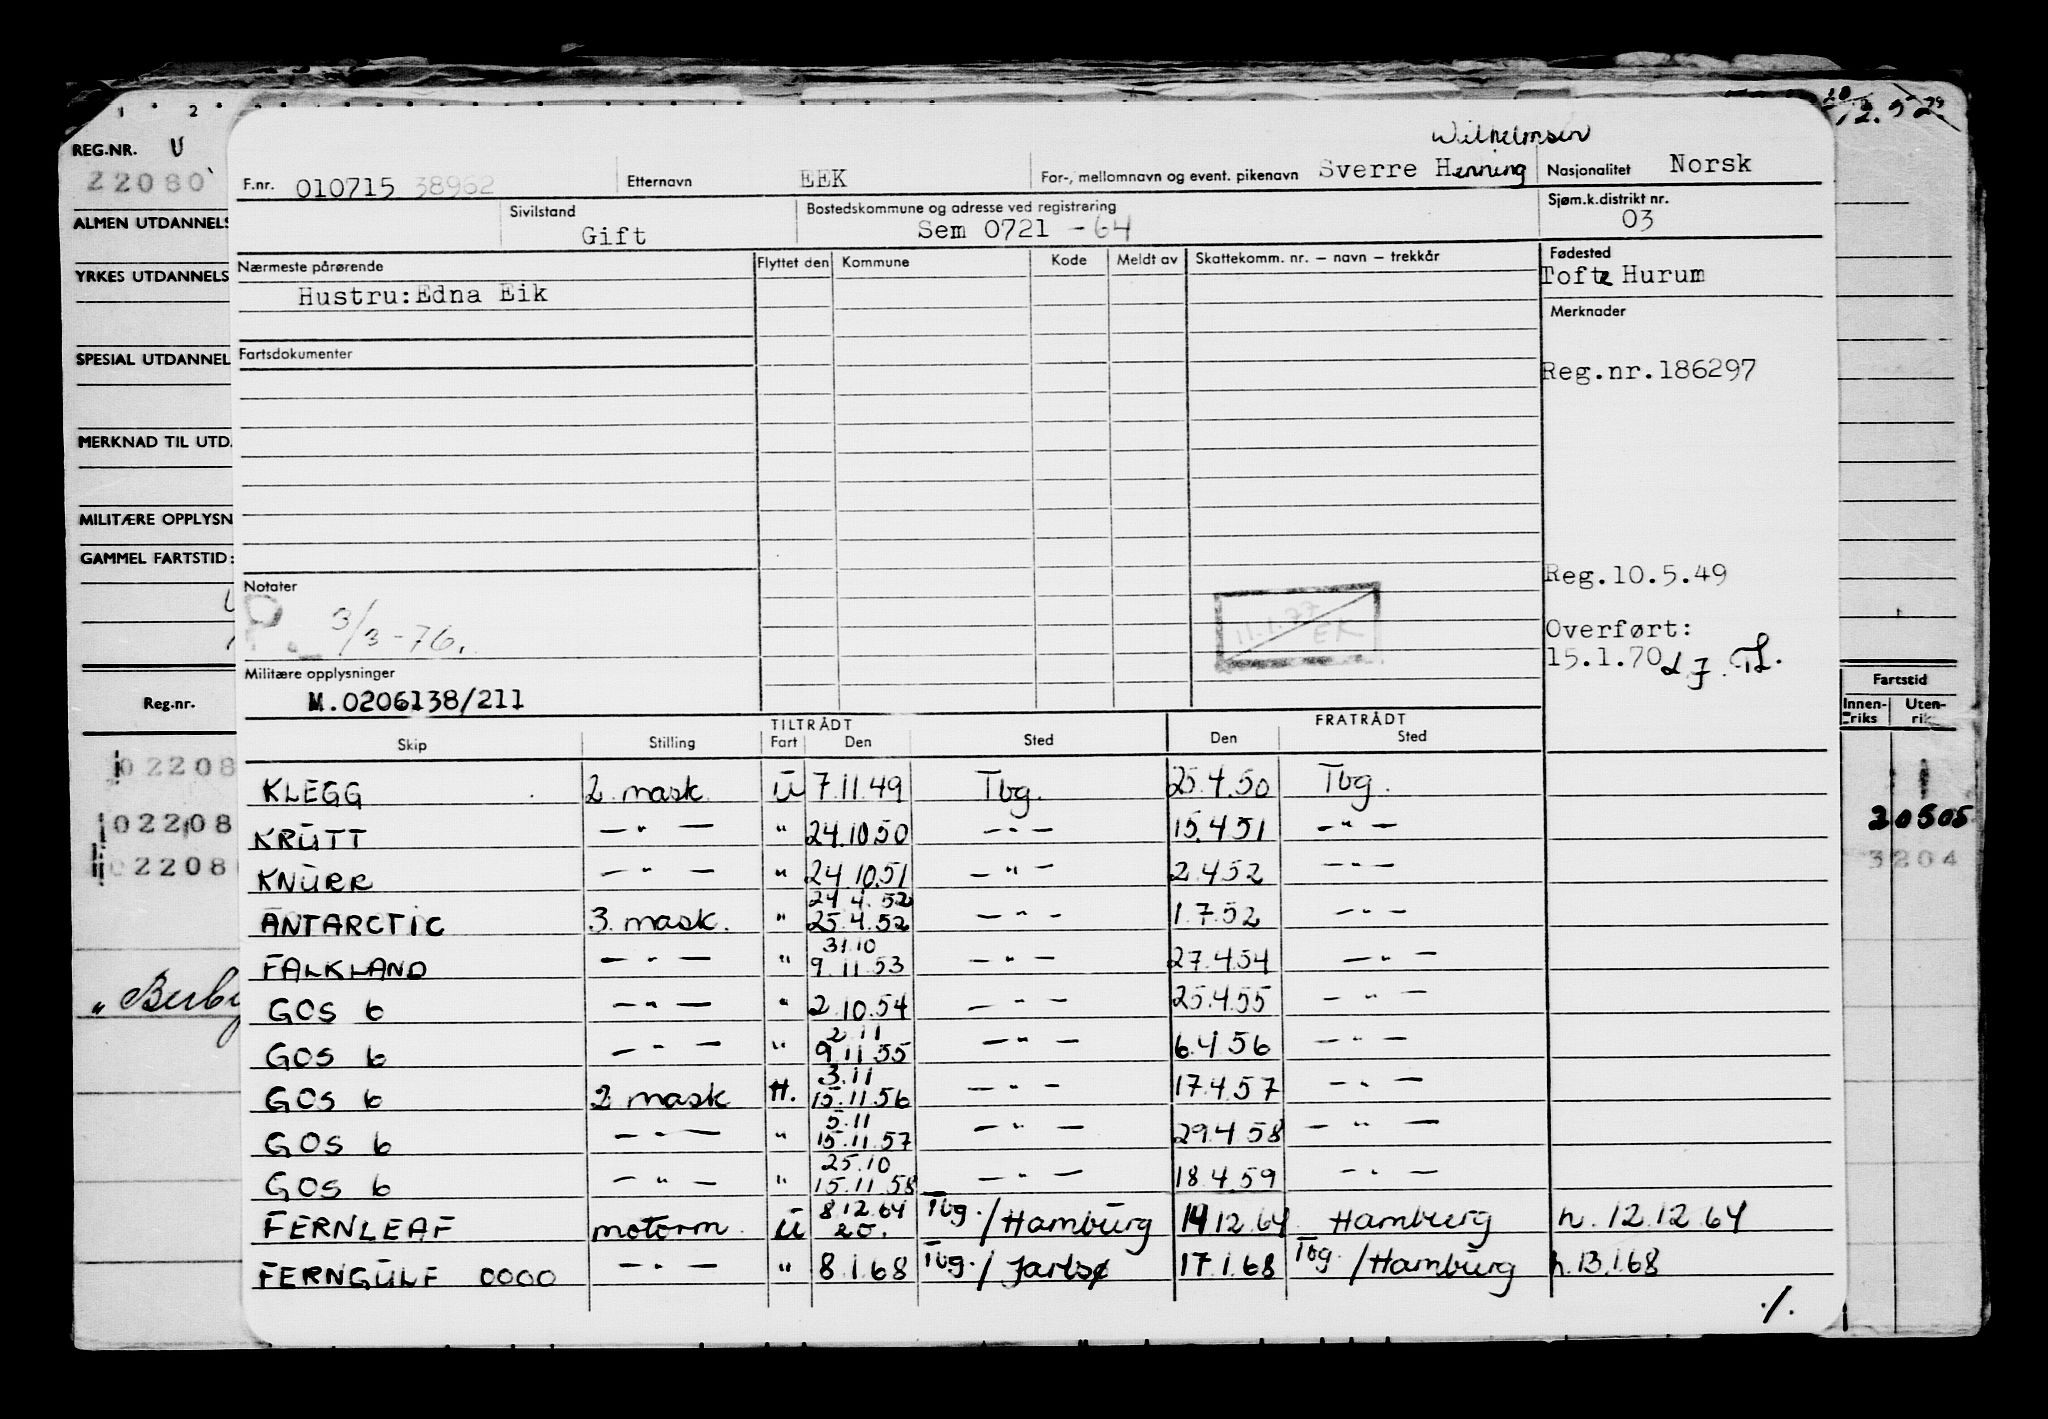 1 2
20/12.52
REG.NR. U
22080
ALMEN UTDANNELS
YRKES UTDANNELS
SPESIAL UTDANNEL
MERKNAD TIL UTD.
MILITÆRE OPPLYSN
GAMMEL FARTSTID:
Reg.nr.
02208
02208
02208
„ Berby
Fartstid
Innen- Uten-
riks rik
20505
3204
Wilhelmsen
F.nr. 010715 38962 Etternavn EEK For-, mellomnavn og event. pikenavn Sverre Henning Nasjonalitet Norsk
Sivilstand Gift Bostedskommune og adresse ved registrering Sem 0721 - 64 Sjøm.k.distrikt nr. 03
Nærmeste pårørende Flyttet den Kommune Kode Meldt av Skattekomm. nr. – navn – trekkår Fødested
Hustru:Edna Eik Tofte Hurum
Merknader
Fartsdokumenter
Reg.nr.186297
Reg.10.5.49
Notater
P. 3/3-76.
11.1.77
EK
Overført:
15.1.70
Militære opplysninger
M.0206138/211
TILTRÅDT FRATRÅDT
Skip Stilling Fart Den Sted Den Sted
KLEGG 2. mask. U 7.11.49 Tbg. 25.4.50 Tbg.
KRUTT — " — " 24.10.50 — " — 15.4.51 — " —
KNURR — " — " 24.10.51 — " — 2.4.52 — " —
24.4.52
ANTARCTIC 3. mask. " 25.4.52 — " — 1.7.52 — " —
31.10
FALKLAND — " — " 9.11.53 — " — 27.4.54 — " —
GOS 6 — " — " 2.10.54 — " — 25.4.55 — " —
2.11
GOS 6 — " — " 9.11.55 — " — 6.4.56 — " —
3.11
GOS 6 2 mask H. 15.11.56 — " — 17.4.57 — " —
5.11
GOS 6 — " — " 15.11.57 — " — 29.4.58 — " —
25.10
GOS 6 — " — " 15.11.58 — " — 18.4.59 — " —
8.12.64
FERNLEAF motorm. U 20. Tbg./Hamburg 14.12.64 Hamburg h. 12.12.64
FERNGULF 0000 — " — " 8.1.68 Tbg./Jarlsø 17.1.68 Tbg./Hamburg h.13.1.68
./.